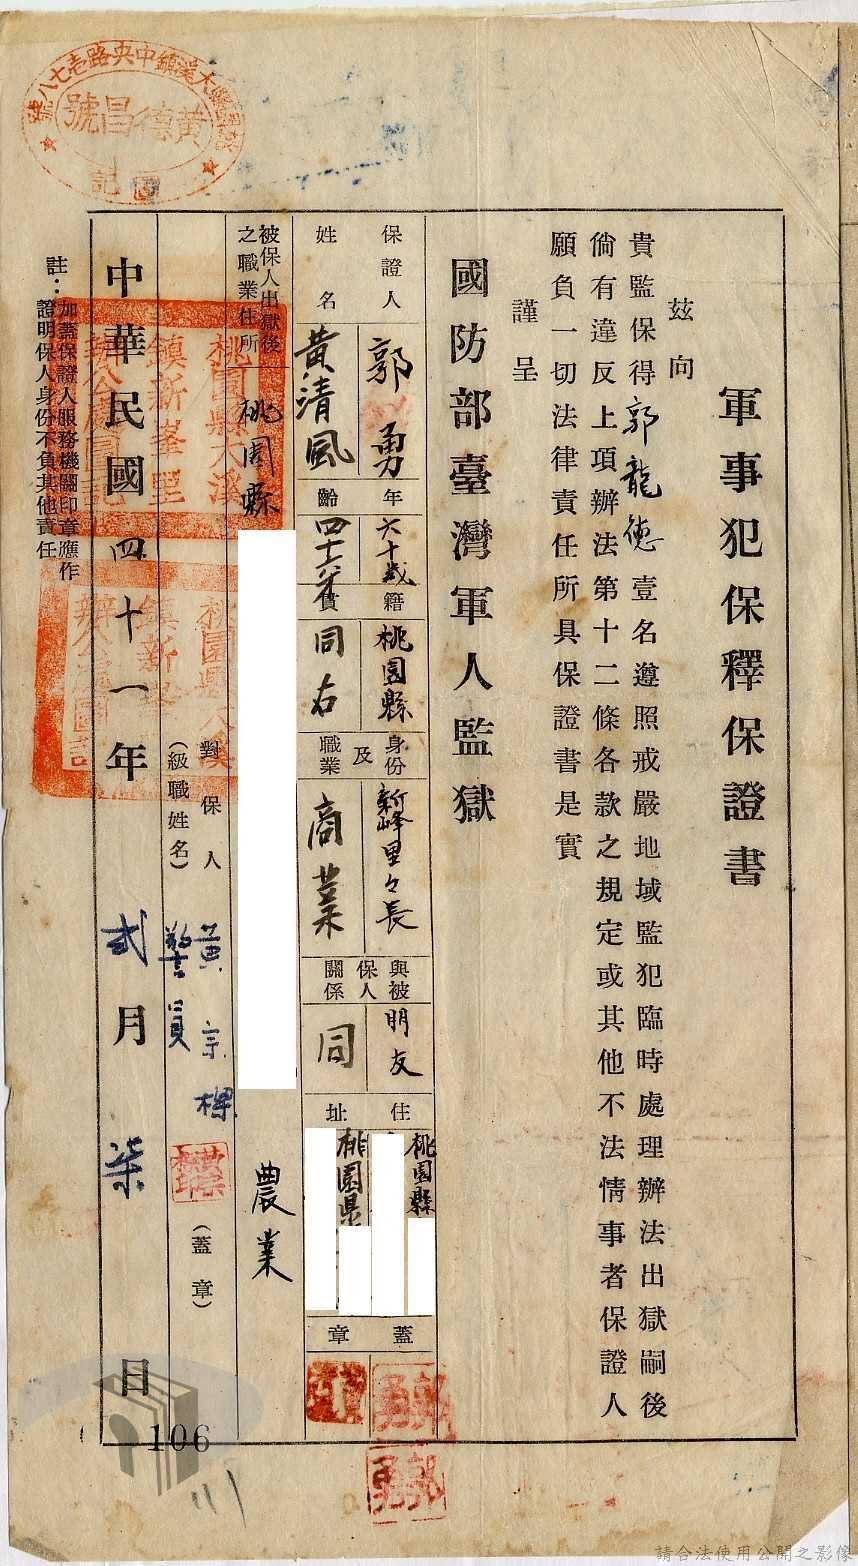 軍事犯保釋保證書
茲向
貴監保得郭龍德壹名遵照戒嚴地域監犯臨時處理辦法出獄嗣後
倘有違反上項辦法第十二條各款之規定或其他不法情事者保證人
願負一切法律責任所具保證書是實
謹呈
國防部臺灣軍人監獄
保證人
姓名
郭勇
黃清風
年齡
六十歲
四十六歲
籍貫
桃園縣
同右
身份及職業
新峰里々長
商業
與被保人關係
朋友
同
住址
桃園縣
桃園県
蓋章
郭勇
郭勇
被保人出獄後之職業住所
桃園縣
農業
對保人
(級職姓名)
黃宗樑
警員
(蓋章)
中華民國四十一年貳月柒日
註：加蓋保證人服務機關印章應作
證明保人身份不負其他責任
桃園縣大溪
鎮新峯里
辦公處圖記
桃園縣大溪
鎮新峯里
辦公處圖記
桃園縣大溪鎮中央路壱七八號
黃德昌號
圖記
106
111
請合法使用公開之影像